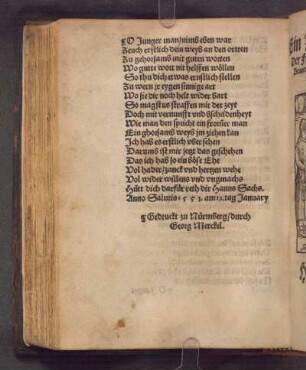 ¶ O Junger man/nimb eben war
Zeuch erstlich dein weyb an den orten
Zu gehorsams mit guten worten
Wo gute wort nit helffen wöllen
So thu dich etwas ernstlich stellen
Zu wern jr eygen sinnige art
Wo sie die noch helt wider bart
So magstus straffen mit der zeyt
Doch mit vernunfft und bscheidenheyt
Wie man den spricht ein fromer man
Ein ghorsams weyb im ziehen kan
Ich hab es erstlich vber sehen
Darumb ist mir jetz das geschehen
Das ich hab so ein böse Ehe
Vol hader/zanck vnd hertzen wehe
Vol widerwillens vnd vngmachs
Hüt dich darfür reth dir Hanns Sachs.
Anno Salutis 1553. am 12. tag January
¶ Gedruckt zu Nürmberg/durch
Georg Merckel.
Ein